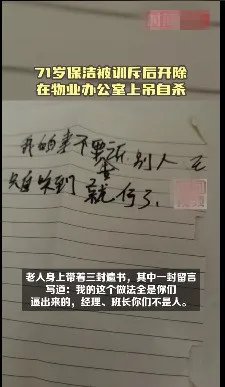 71岁保洁被训斥后开除
在物业办公室上吊自杀
我的事不要诉别人
只自
就行了
老人身上带着三封遗书，其中一封留言
写道：我的这个做法全是你们
逼出来的，经理、班长你们不是人。